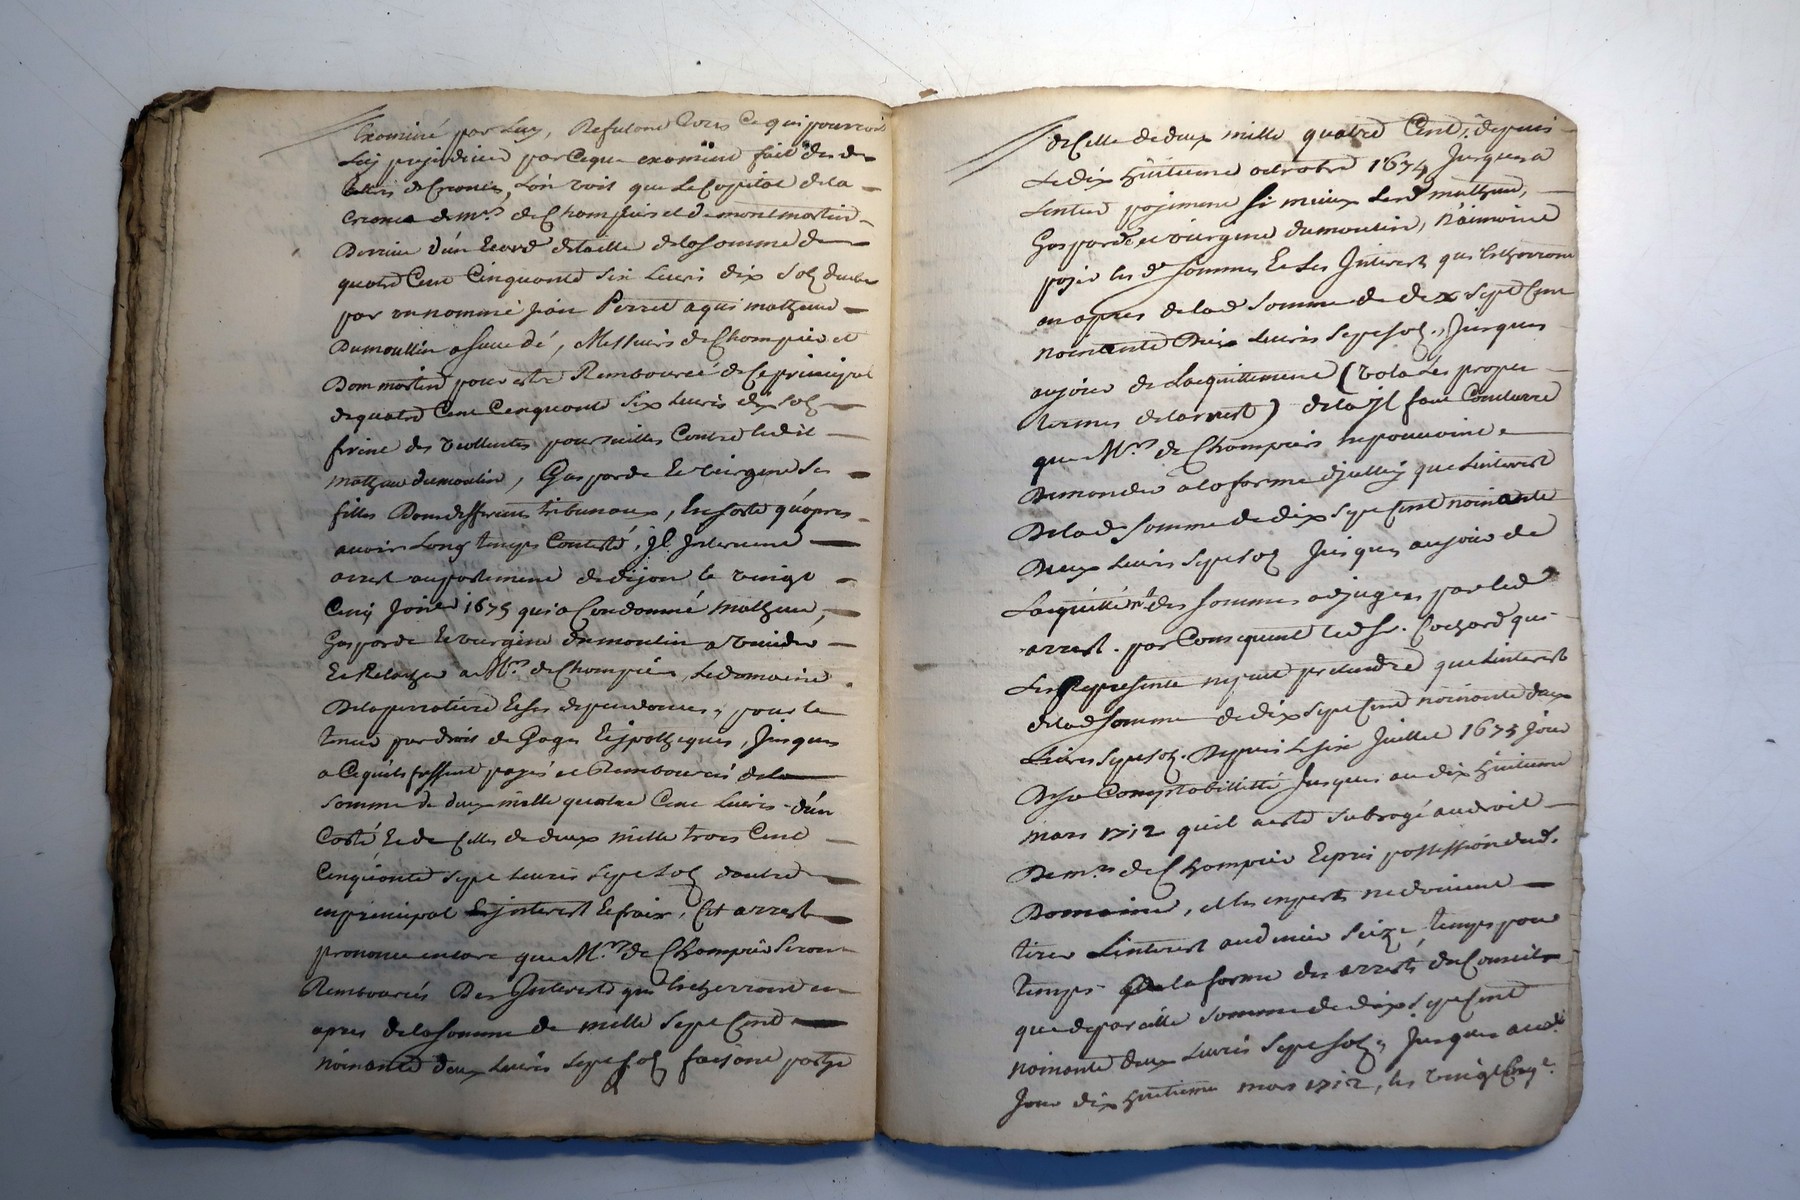 Examiné par Luy, Refutant tous ce qui pourroit
Luy prejudicier par ce que examiné fait des de
de Creance, L'on voit que Le Capital de la
Creance de Mrs. de Champier et de montmartin
Derrive d'un de la somme de
quatre Cent Cinquante Six Livres dix Solz deube
par un nommé Jean Perret a qui mathieu
Dumoullin a Succedé, Messieurs de Champier et
Dommartin pour estre Remboursé de Ce principal
de quatre Cent Cinquante Six Livres dix solz
firent des viollentes poursuittes Contre ledit
mathieu dumoulin, Gasparde Et virgine Ses
filles Dans differents tribunaux, En sorte qu'apres
avoir Long temps Contesté, Jl Jntervent
arrest au parlement de dijon le vingt
Cinq Janvier 1675 qui a Condamné mathieu,
Gasparde Et virgine dumoulin a vuider
Et Relacher a Mrs. de Champier, Le domaine
De la perratiere Et ses dependances, pour le
tenir par droit de Gages Et jpotheques, Jusques
a Ce qu'ils fussent payés et Remboursés de la
somme de deux mille quatre Cent Livres d'un
Costé Et de Celles de deux mille trois Cent
Cinquante Sept Livres Sept Solz d'autre
en principal Et jnterest Et fraix, Cet arrest
prononce encore que Mrs. de Champier Seront
Remboursés Des Jnterests qui Escherront en
apres de la somme de mille Sept Cent
nonante deux Livres Sept Solz faisant partye
de Celle de deux mille quatre Cent, depuis
Le dix huitieme octobre 1674 Jusques a
L'entier payement Si mieux Lesd. mathieu,
Gasparde et virgine dumoulin, n'aimoint
payer les d. Sommes Et Les Jnterests qui Escherront
en apres de lad. Somme de dix Sept Cent
nonante Deux Livres Sept Solz, Jusques
au jour de L'acquittement (voila Les propres
termes de l'arrest) de la Jl faut Conclurre
que Mrs. de Champier ne pouvoint
Demander a la forme d'jcelluy que L'interest
De lad. Somme de dix Sept Cent nonante
Deux Livres Sept Solz Jusques au jour de
L'acquittemt. des Sommes adjugees par led.
arrest. par Consequent led. Sr. Cochard qui
Les Represente ne peut pretendre que L'interest
de lad. somme de dix Sept Cent nonante deux
Livres Sept Solz. Depuis Le six Juillet 1675 Jour
De sa Comptabillitté Jusques au dix huitieme
mars 1712 qu'il a esté Subrogé au droit
De mrs. de Champier Et pris possession dud.
Domaine, et Les experts ne devoient
tirer L'interest au denier Seize temps pour
temps a la forme des arrests du Conseil
que de pareille somme de dix Sept Cent
nonante deux Livres Sept Solz, Jusques aud.
Jour dix huitieme mars 1712, les vingt Cinqe.